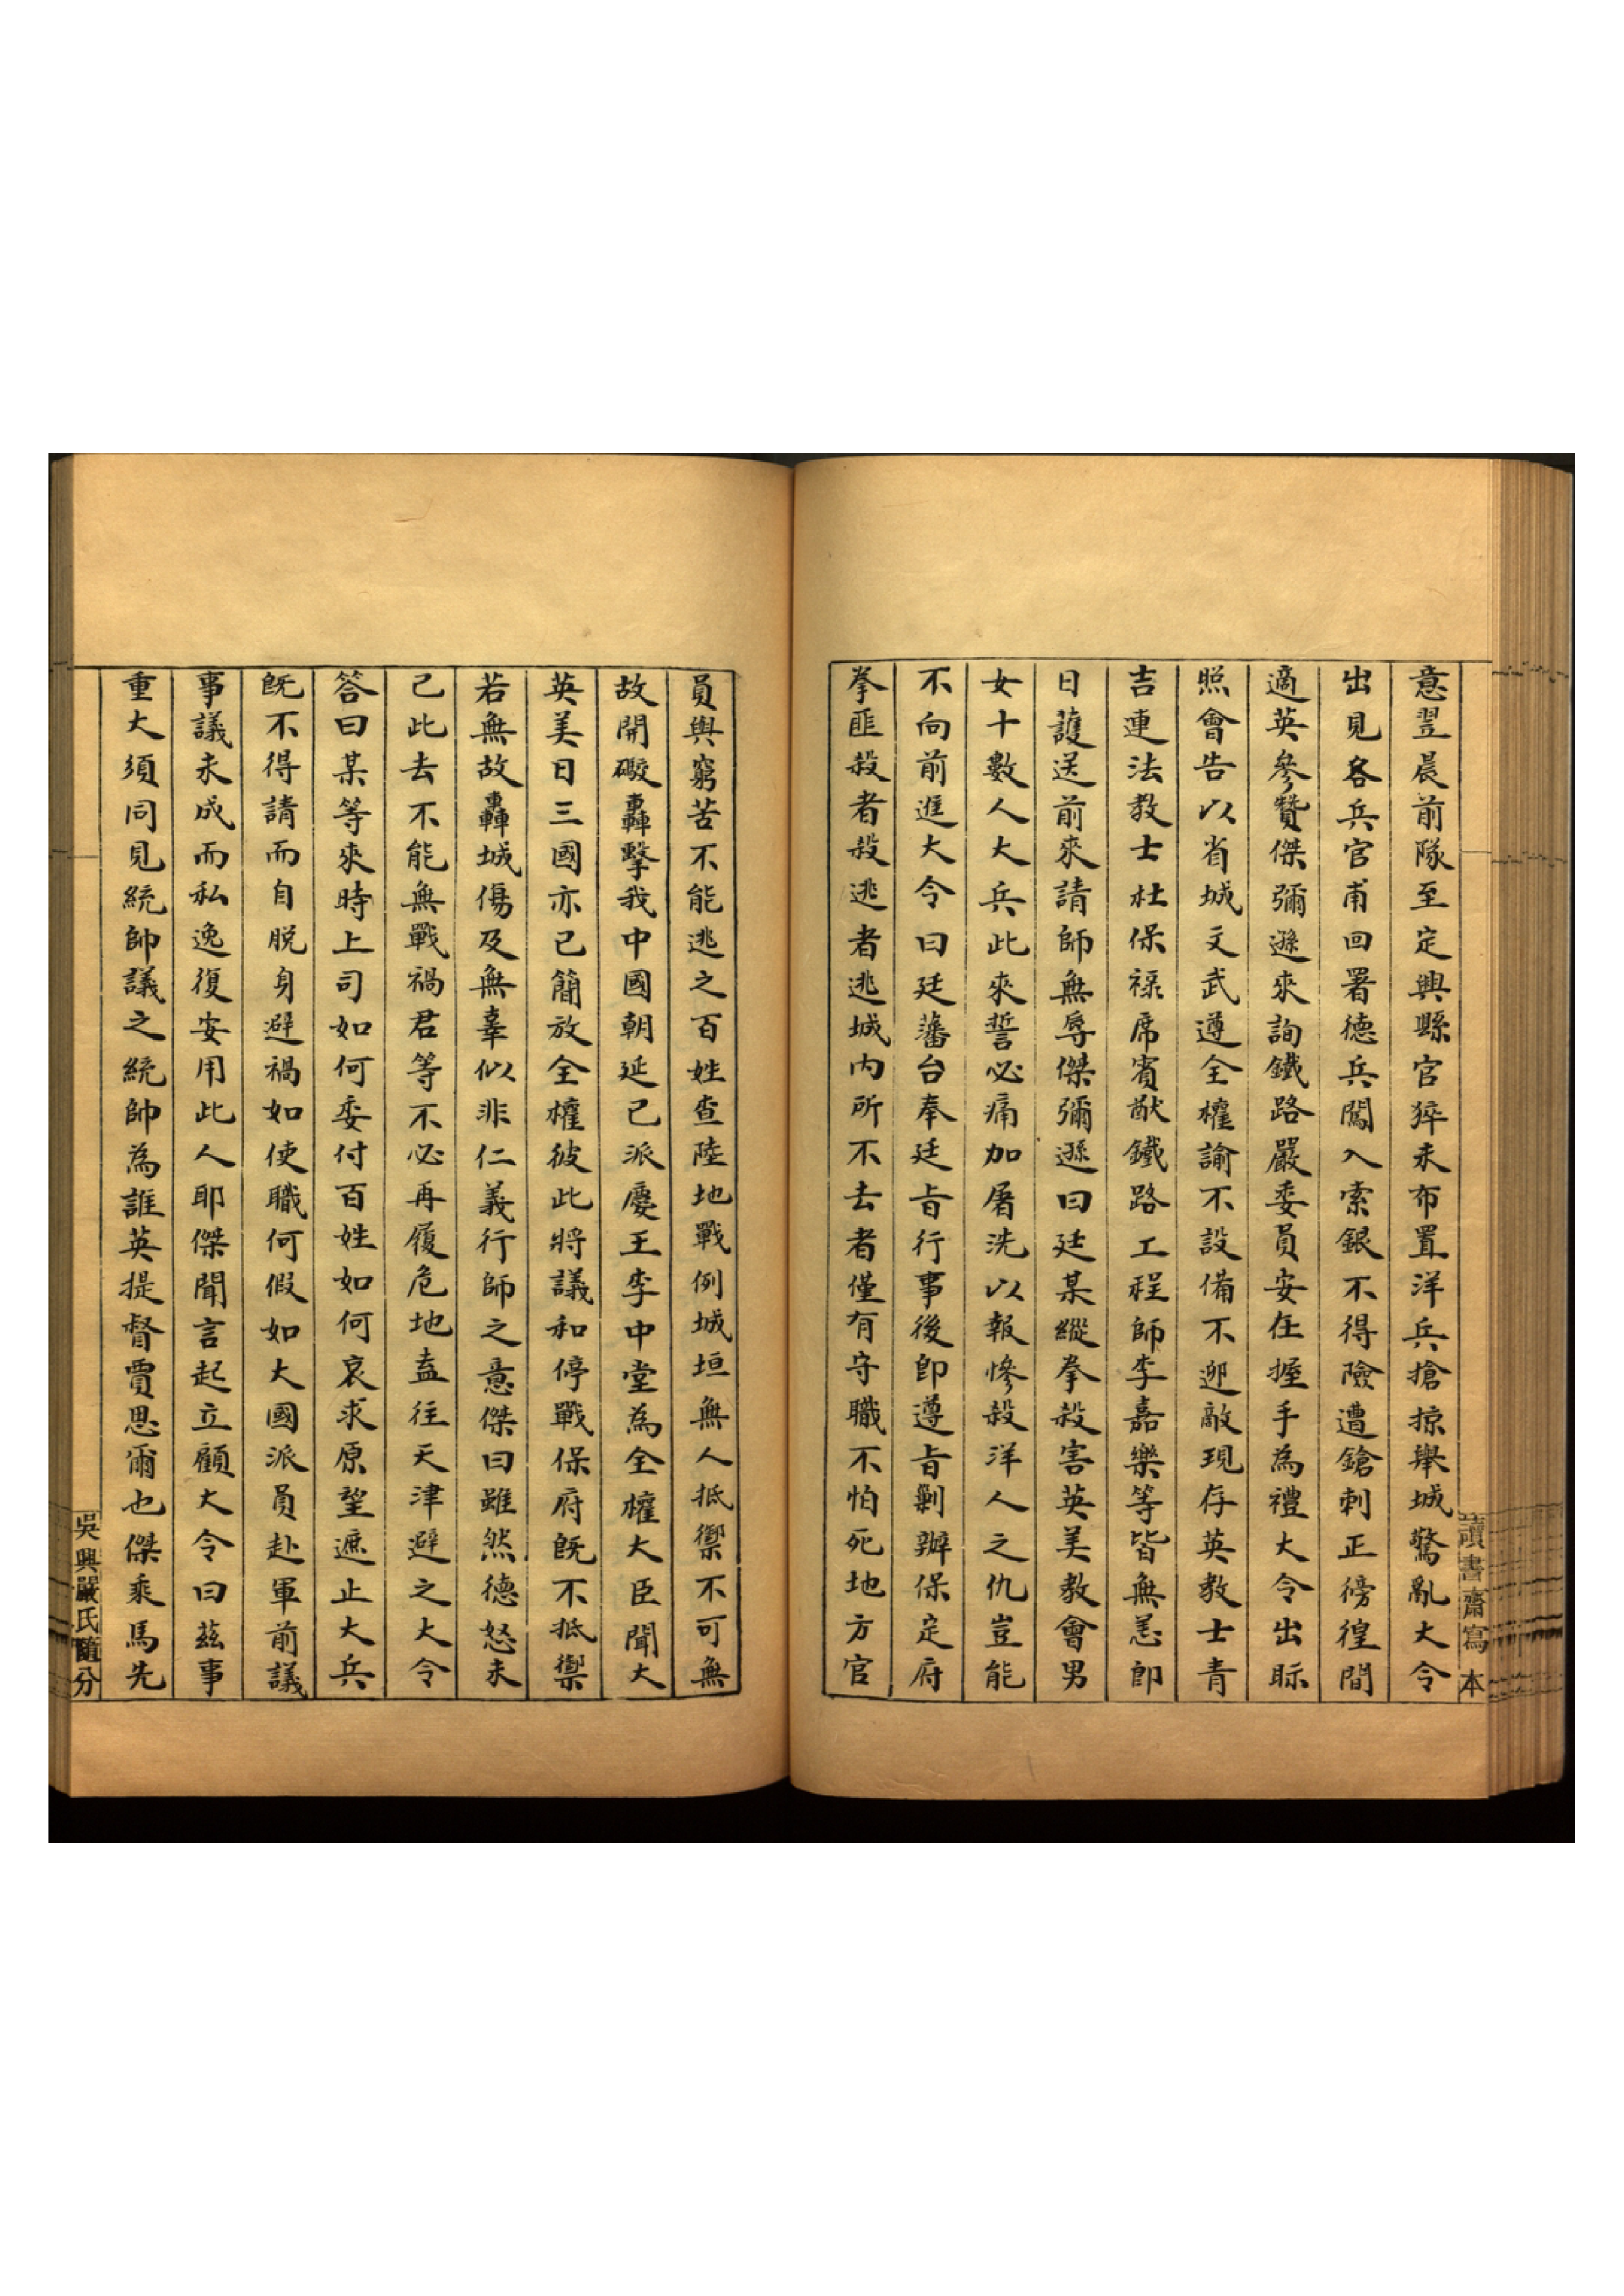 意翌晨前隊至定興縣官猝未布置洋兵搶掠舉城驚亂大令
出見各兵官甫回署德兵闖入索銀不得險遭鎗刺正徬徨間
適英參贊傑彌遜來詢鐵路嚴委員安在握手為禮大令出眎
照會告以省城文武遵全權諭不設備不迎敵現存英教士青
吉連法教士杜保祿席賓猷鐵路工程師李嘉樂等皆無恙即
日護送前來請師無辱傑彌遜曰廷某縱拳殺害英美教會男
女十數人大兵此來誓必痛加屠洗以報慘殺洋人之仇豈能
不向前進大令曰廷藩台奉廷旨行事後即遵旨剿辦保定府
拳匪殺者殺逃者逃城內所不去者僅有守職不怕死地方官
讀書齋寫本
員與窮苦不能逃之百姓查陸地戰例城垣無人抵禦不可無
故開礮轟擊我中國朝延已派慶王李中堂為全權大臣聞大
英美日三國亦已簡放全權彼此將議和停戰保府既不抵禦
若無故轟城傷及無辜似非仁義行師之意傑曰雖然德怒未
已此去不能無戰禍君等不必再履危地盍往天津避之大令
答曰某等來時上司如何委付百姓如何哀求原望遮止大兵
既不得請而自脱身避禍如使職何假如大國派員赴軍前議
事議未成而私逸復安用此人耶傑聞言起立顧大令曰茲事
重大須同見統帥議之統帥為誰英提督賈思爾也傑乘馬先
吳興嚴氏隨分